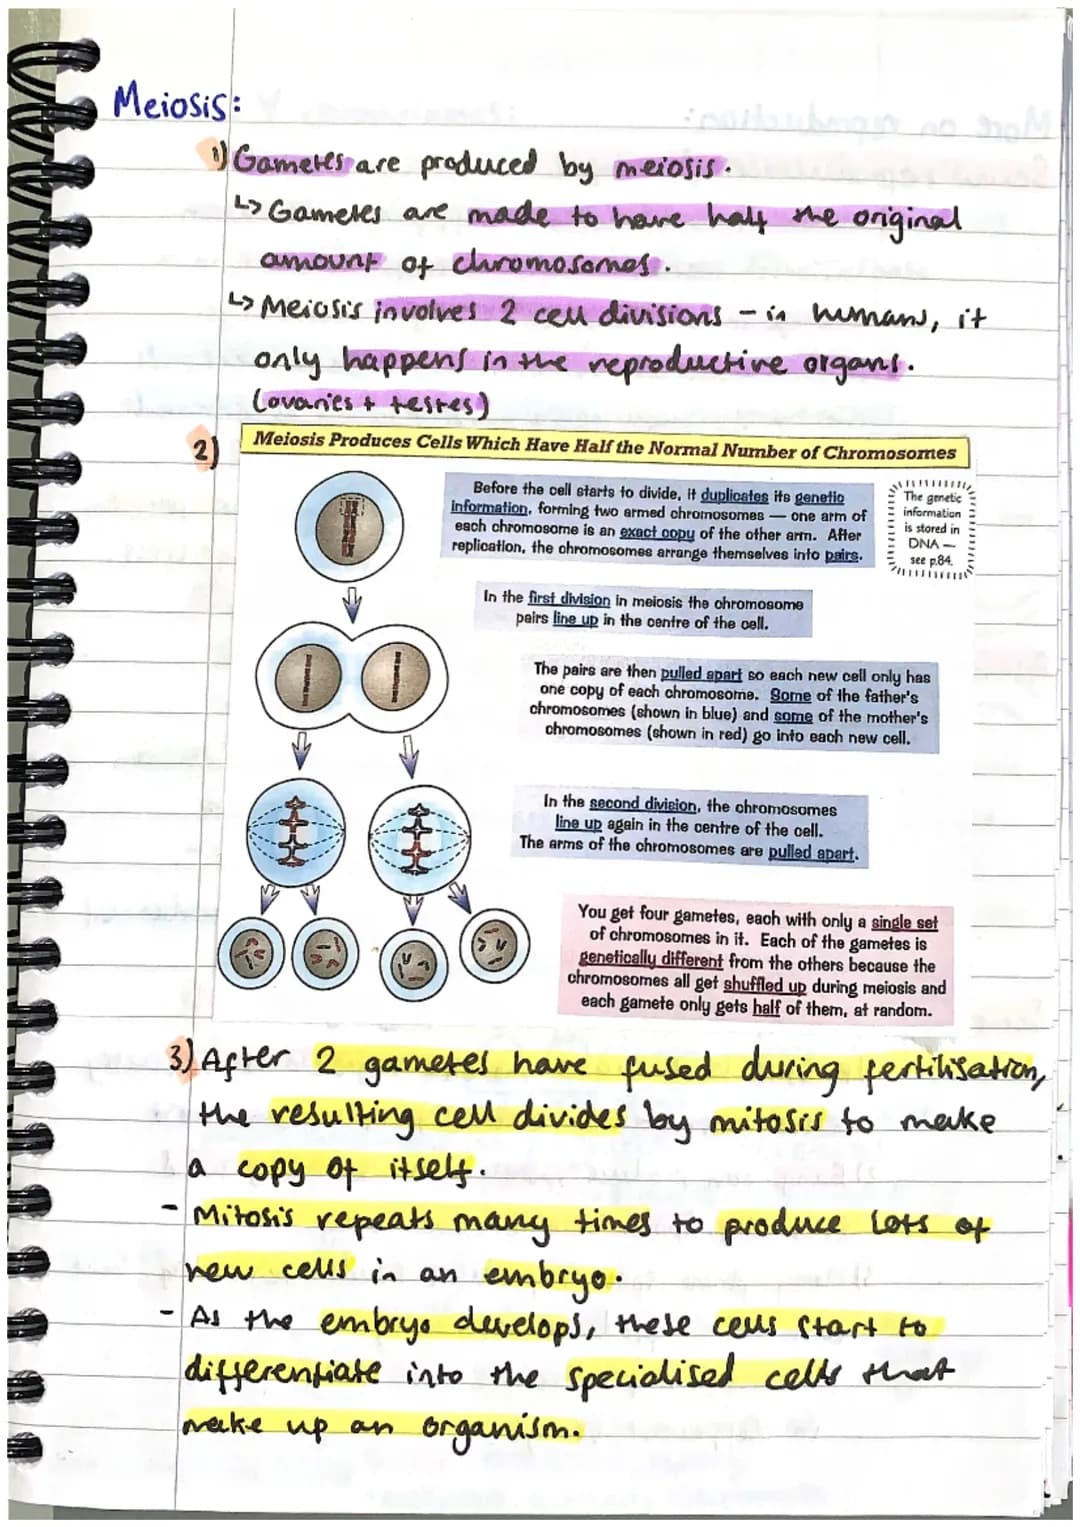 Meiosis:
1) Gametes are produced by meiosis.
↳ Gametes are made to have half the original
amount of chromosomes.
↳ Meiosis involves 2 cell divisions - in humans, it
only happens in the reproductive organs.
(ovaries + testes)
2)
Meiosis Produces Cells Which Have Half the Normal Number of Chromosomes
Before the cell starts to divide, it duplicates its genetic
information, forming two armed chromosomes — one arm of
each chromosome is an exact copy of the other arm. After
replication, the chromosomes arrange themselves into pairs.
The genetic
information
is stored in
DNA —
see p.84.
In the first division in meiosis the chromosome
pairs line up in the centre of the cell.
The pairs are then pulled apart so each new cell only has
one copy of each chromosome. Some of the father's
chromosomes (shown in blue) and some of the mother's
chromosomes (shown in red) go into each new cell.
In the second division, the chromosomes
line up again in the centre of the cell.
The arms of the chromosomes are pulled apart.
You get four gametes, each with only a single set
of chromosomes in it. Each of the gametes is
genetically different from the others because the
chromosomes all get shuffled up during meiosis and
each gamete only gets half of them, at random.
3) After 2 gametes have fused during fertilisation,
the resulting cell divides by mitosis to make
a copy of itself.
- Mitosis repeats many times to produce lots of
new cells in an embryo.
- As the embryo develops, these cells start to
differentiate into the specialised cells that
make up an organism.